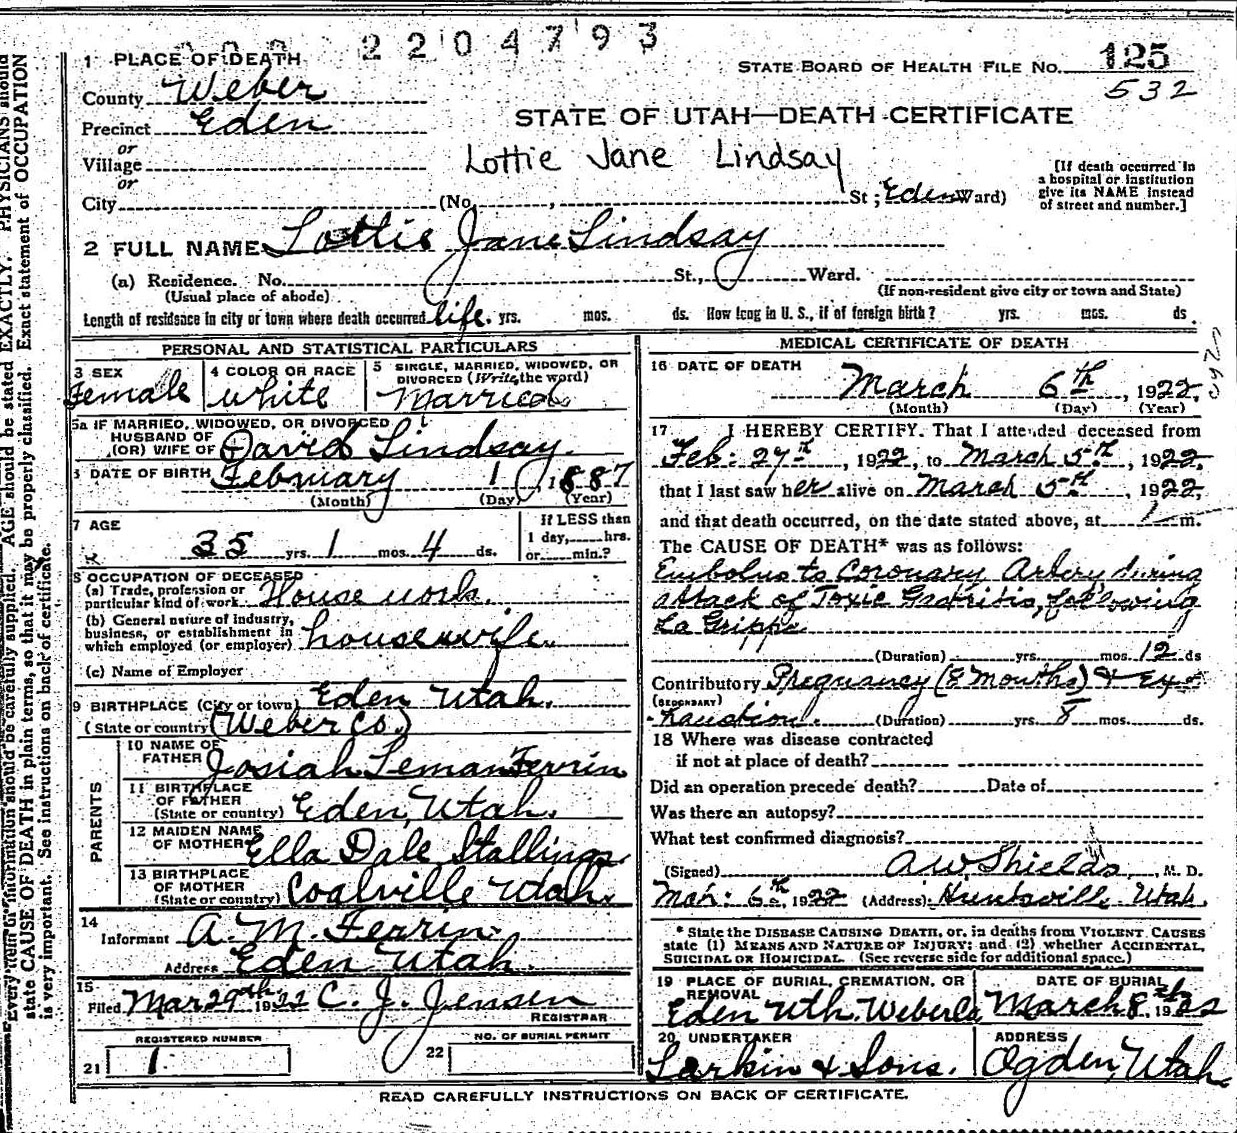 2204793
1 PLACE OF DEATH
STATE BOARD OF HEALTH FILE NO. 125
532
County Weber
Precinct Eden
STATE OF UTAH—DEATH CERTIFICATE
or
Village
Lottie Jane Lindsay
or
City (No. , St; Eden Ward)
[If death occurred in
a hospital or institution
give its NAME instead
of street and number.]
2 FULL NAME Lottie Jane Lindsay
(a) Residence. No. St., Ward.
(Usual place of abode) (If non-resident give city or town and State)
Length of residence in city or town where death occurred life. yrs. mos. ds. How long in U. S., if of foreign birth? yrs. mos. ds.
PERSONAL AND STATISTICAL PARTICULARS
3 SEX
Female
4 COLOR OR RACE
white
5 SINGLE, MARRIED, WIDOWED, OR
DIVORCED (Write the word)
Married
5a IF MARRIED, WIDOWED, OR DIVORCED
HUSBAND OF
(OR) WIFE OF David Lindsay.
6 DATE OF BIRTH February 1, 1887
(Month) (Day) (Year)
7 AGE
35 yrs. 1 mos. 4 ds.
If LESS than
1 day, hrs.
or min.?
8 OCCUPATION OF DECEASED
(a) Trade, profession or
particular kind of work House work.
(b) General nature of industry,
business, or establishment in
which employed (or employer) housewife.
(c) Name of Employer
9 BIRTHPLACE (City or town) Eden Utah.
(State or country) (Weber Co.)
PARENTS
10 NAME OF
FATHER Josiah Leman Ferrin
11 BIRTHPLACE
OF FATHER
(State or country) Eden, Utah.
12 MAIDEN NAME
OF MOTHER Ella Dale Stallings.
13 BIRTHPLACE
OF MOTHER
(State or country) Coalville Utah.
14
Informant A. M. Ferrin.
Address Eden Utah.
15
Filed Mar 29th 1922 C. J. Jensen
REGISTRAR
REGISTERED NUMBER
21 1.
NO. OF BURIAL PERMIT
22
MEDICAL CERTIFICATE OF DEATH
16 DATE OF DEATH
March 6th, 1922.
(Month) (Day) (Year)
17 I HEREBY CERTIFY. That I attended deceased from
Feb: 27th, 1922, to March 5th, 1922.
that I last saw her alive on March 5th, 1922.
and that death occurred, on the date stated above, at 1 m.
The CAUSE OF DEATH* was as follows:
Embolus to Coronary Artery during
attack of Toxic Gastritis, following
La Grippe
(Duration) yrs. mos. 12 ds
Contributory Pregnancy (8 Months) & Ex-
(SECONDARY)
haustion. (Duration) yrs. 8 mos. ds.
18 Where was disease contracted
if not at place of death?
Did an operation precede death? Date of
Was there an autopsy?
What test confirmed diagnosis?
(Signed) A W. Shields, M. D.
Mar: 6th 1922 (Address): Huntsville Utah.
* State the DISEASE CAUSING DEATH, or, in deaths from VIOLENT CAUSES
state (1) MEANS AND NATURE OF INJURY; and (2) whether ACCIDENTAL,
SUICIDAL OR HOMICIDAL. (See reverse side for additional space.)
19 PLACE OF BURIAL, CREMATION, OR
REMOVAL
Eden Uth. Weber Co
DATE OF BURIAL
March 8th, 1922
20 UNDERTAKER
Larkin & Sons.
ADDRESS
Ogden, Utah.
READ CAREFULLY INSTRUCTIONS ON BACK OF CERTIFICATE.
Every item of information should be carefully supplied. AGE should be stated EXACTLY. PHYSICIANS should
state CAUSE OF DEATH in plain terms, so that it may be properly classified. Exact statement of OCCUPATION
is very important. See instructions on back of certificate.